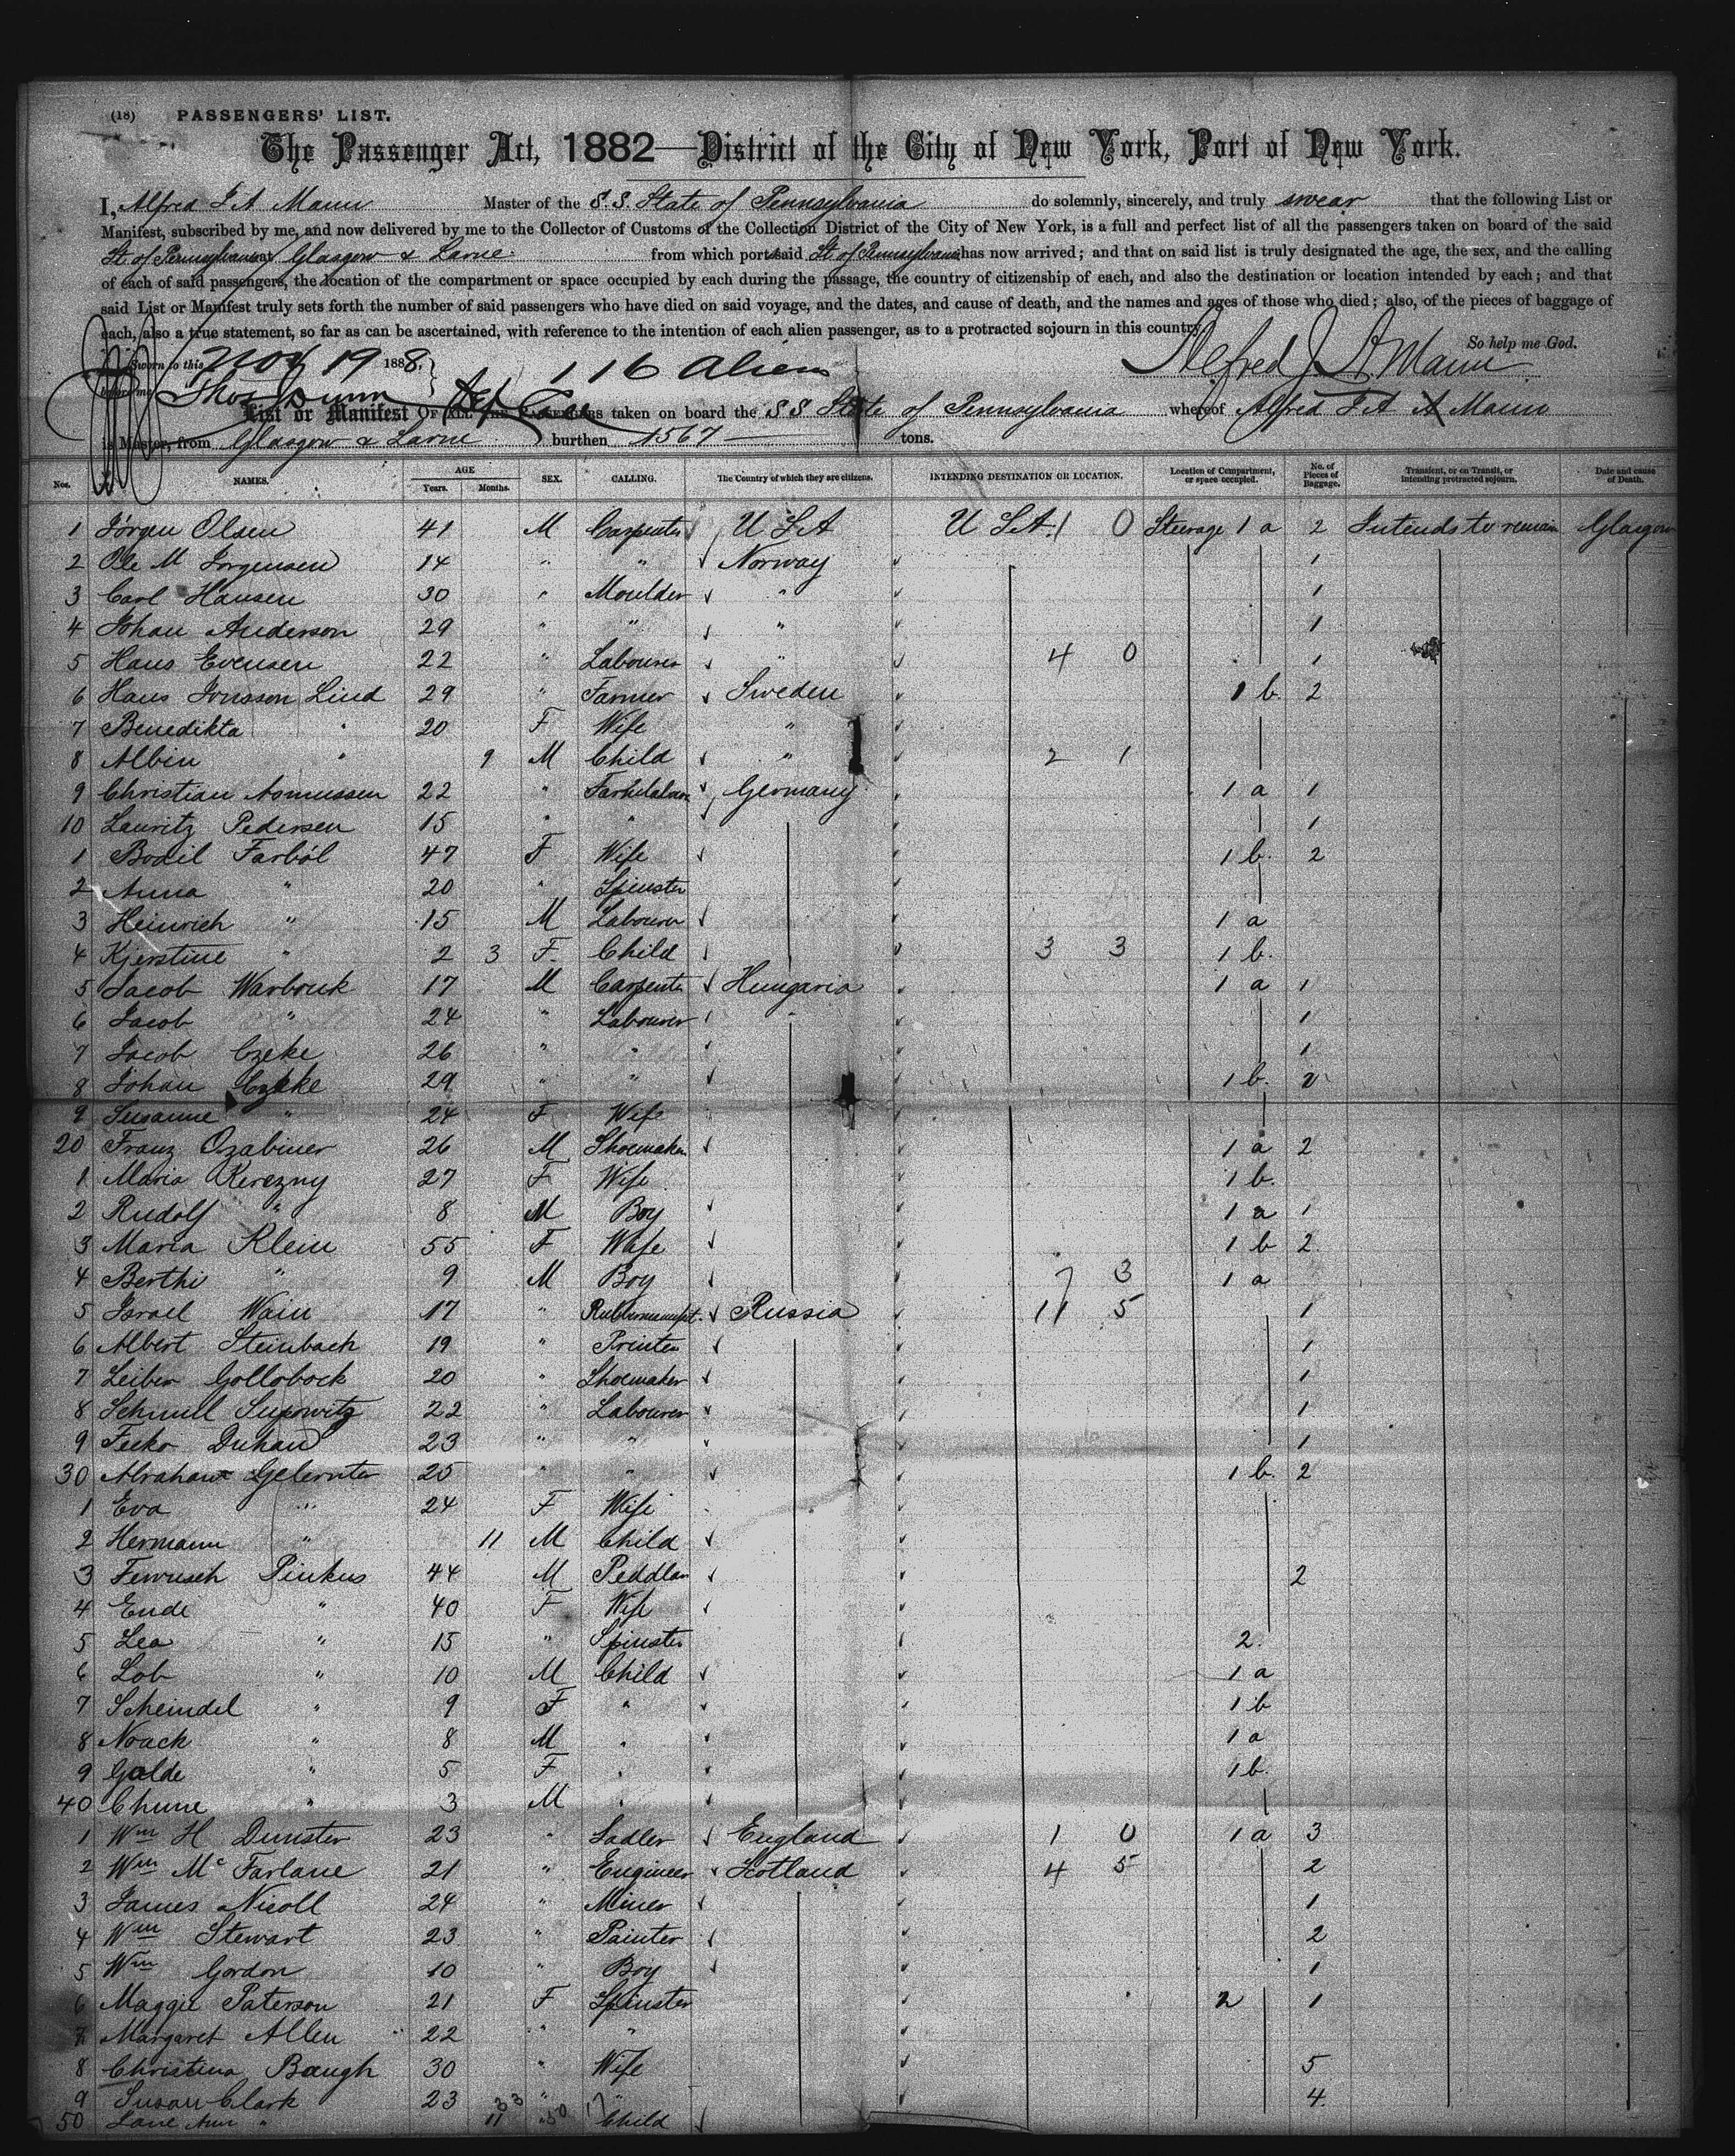 (18) PASSENGERS' LIST.
The Passenger Act, 1882—District of the City of New York, Port of New York.
I, Alfred J A Mann Master of the S.S. State of Pennsylvania do solemnly, sincerely, and truly swear that the following List or
Manifest, subscribed by me, and now delivered by me to the Collector of Customs of the Collection District of the City of New York, is a full and perfect list of all the passengers taken on board of the said
St. of Pennsylvania at Glasgow & Larne from which port said St. of Pennsylvania has now arrived; and that on said list is truly designated the age, the sex, and the calling
of each of said passengers, the location of the compartment or space occupied by each during the passage, the country of citizenship of each, and also the destination or location intended by each; and that
said List or Manifest truly sets forth the number of said passengers who have died on said voyage, and the dates, and cause of death, and the names and ages of those who died; also, of the pieces of baggage of
each, also a true statement, so far as can be ascertained, with reference to the intention of each alien passenger, as to a protracted sojourn in this country.
So help me God.
Sworn to this Nov 19 1888. 116 Aliens Alfred J. A. Mann
before me Thos Dunn
List or Manifest OF ALL THE PASSENGERS taken on board the SS State of Pennsylvania whereof Alfred J A Mann
is Master, from Glasgow & Larne burthen 1567 tons.
Nos. NAMES. AGE Years. Months. SEX. CALLING. The Country of which they are citizens. INTENDING DESTINATION OR LOCATION. Location of Compartment, or space occupied. No. of Pieces of Baggage. Transient, or on Transit, or intending protracted sojourn. Date and cause of Death.
1 Jörgen Olsen 41 M Carpenter U S A U S.A. 1 0 Steerage 1 a 2 Intends to remain Glasgow
2 Ole M Jorgensen 14 " " Norway 1
3 Carl Hansen 30 " Moulder " 1
4 Johan Anderson 29 " " " 1
5 Hans Evensen 22 " Labourer " 4 0 1
6 Hans Jonsson Lind 29 " Farmer Sweden 1 b. 2
7 Benedikta " 20 F Wife "
8 Albin " 9 M Child " 2 1
9 Christian Asmussen 22 " Germany 1 a 1
10 Lauritz Pedersen 15 " " 1
1 Bodil Farböl 47 F Wife 1 b. 2
2 Anna " 20 " Spinster
3 Heinrich " 15 M Labourer 1 a
4 Kjerstine " 2 3 F Child 3 3 1 b.
5 Jacob Warbouk 17 M Carpenter Hungaria 1 a 1
6 Jacob " 24 " Labourer 1
7 Jacob Czeke 26 " " 1
8 Johan Czeke 29 " " 1 b. 2
9 Susanne " 24 F Wife
20 Franz Ozabiner 26 M Shoemaker 1 a 2
1 Maria Kerezny 27 F Wife 1 b.
2 Rudolf " 8 M Boy 1 a 1
3 Maria Klein 55 F Wife 1 b 2
4 Berthi " 9 M Boy 7 3 1 a
5 Israel Wain 17 " Russia 11 5 1
6 Albert Steinbach 19 " Printer 1
7 Leiber Gollobock 20 " Shoemaker 1
8 Schmull Supowitz 22 " Labourer 1
9 Feeko Duhan 23 " " 1
30 Abraham Gelernter 25 " " 1 b. 2
1 Eva " 24 F Wife
2 Hermann " 11 M Child
3 Pinkus 44 M Peddlar 2
4 Eudi " 40 F Wife
5 Lea " 15 " Spinster 2.
6 Lob " 10 M Child 1 a
7 Scheindel " 9 F " 1 b
8 Noack " 8 M " 1 a
9 Golde " 5 F " 1 b.
40 Chune " 3 M "
1 Wm H Dunster 23 " Sadler England 1 0 1 a 3
2 Wm McFarlane 21 " Engineer Scotland 4 5 2
3 James Nicoll 24 " Miner 1
4 Wm Stewart 23 " Painter 2
5 Wm Gordon 10 " Boy 1
6 Maggie Paterson 21 F Spinster 2 1
7 Margaret Allen 22 " "
8 Christina Baugh 30 " Wife 5
9 Susan Clark 23 " " 4.
50 Jane Ann " 11 " Child